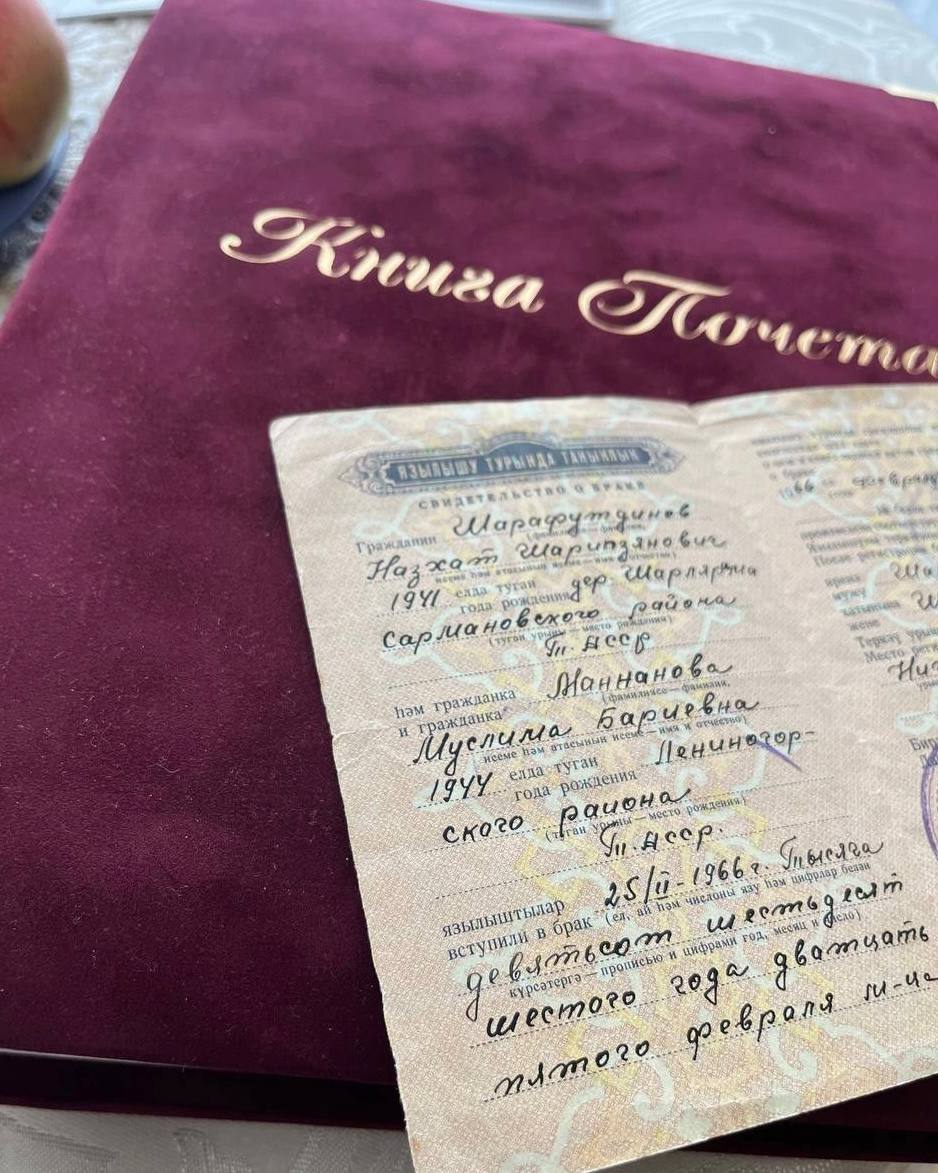 Книга Почета
ЯЗЫЛЫШУ ТУРЫНДА ТАНЫКЛЫК
СВИДЕТЕЛЬСТВО О БРАКЕ
Гражданин Шарафутдинов
(фамилиясе—фамилия)
Назхат Шарипзянович
исеме һәм атасының исеме—имя и отчество)
1941 елда туган
года рождения дер. Шарлярама
Сармановского района
(туган урыны—место рождения)
Т. АССР
һәм гражданка Маннанова
и гражданка
(фамилиясе—фамилия,
Муслима Бариевна
исеме һәм атасының исеме—имя и отчество)
1944 елда туган Лениногор-
года рождения
ского района
(туган урыны—место рождения)
Т. АССР.
язылыштылар 25/II-1966 г. Тысяча
вступили в брак (ел, ай һәм числоны язу һәм цифрлар белән
девятьсот шестьдесят
күрсәтергә—прописью и цифрами год, месяц и число)
шестого года дватцать
пятого февраля м-ца
1966
мужу
жене
Место